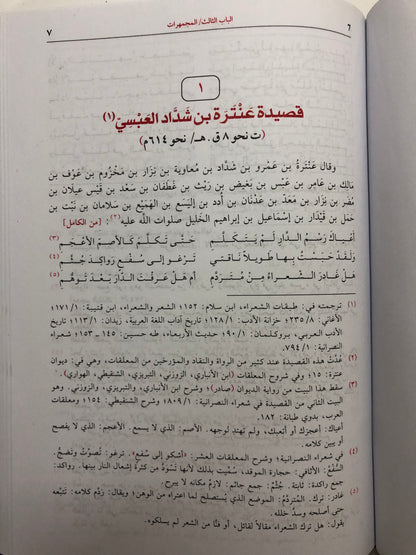 ٦
الباب الثالث/ المجمهرات
٧
١
قصيدة عَنْتَرة بن شَدَّاد العَبْسِيّ (١)
(ت نحو ٨ ق.هـ/ نحو ٦١٤م)
وقال عَنْتَرَةُ بن عَمْرو بن شَدَّاد بن معاوية بن نِزَار بن مَخْزُوم بن عَوْف بن
مَالك بن عَامِر بن عَبْس بن بَغيض بن رَيْث بن غَطَفان بن سَعْد بن قَيْس عيلان بن
مُضَر بن نِزَار بن مَعَدّ بن عَدْنَان بن أُدد بن إليَسع بن الهَمَيْع بن سَلامان بن نَبْت بن
حَمَل بن قَيْدَار بن إسْمَاعيل بن إبراهيم الخَليل صلوات الله عليه(٢): [من الكامل]
أَعْيَاكَ رَسْمُ الدَّارِ لَمْ يَتَكَلَّمِ حَتَّى تَكَلَّمَ كَالأَصَمِّ الأَعْجَمِ (٣)
وَلَقَدْ حَبَسْتُ بِهَا طَوِيلاً نَاقَتِي تَرْغُو إِلى سُفْعٍ رَوَاكِدَ جُثَّمِ (٤)
هَلْ غَادَرَ الشُّعَرَاءُ مِنْ مُتَرَدَّمِ أَمْ هَلْ عَرَفْتَ الدَّارَ بَعْدَ تَوَهُّمِ (٥)
(١) ترجمته في: طبقات الشعراء، ابن سلام: ١٥٢؛ الشعر والشعراء، ابن قتيبة: ١٧١/١؛
الأغاني: ٢٣٥/٨؛ خزانة الأدب: ١٢٨/١؛ تاريخ آداب اللغة العربية، زيدان: ١١٣/١؛ تاريخ
الأدب العربي، بروكلمان: ٩٠/١؛ حديث الأربعاء، طه حسين: ١٤٥ ـ ١٥٣؛ شعراء
النصرانية: ٧٩٤/١.
(٢) عُدَّتْ هذه القصيدة عند كثير من الرواة والنقاد والمؤرخين من المعلقات، وهي في: ديوان
عنترة: ١٥؛ وفي شروح المعلقات (ابن الأنباري، الزوزني، التبريزي، الشنقيطي، الهواري).
(٣) سقط هذا البيت من رواية الديوان (صادر)؛ وشرح ابن الأنباري، والتبريزي، والزوزني. وهو
البيت الثاني من القصيدة في شعراء النصرانية: ٨٠٩/١؛ وشرح الشنقيطي: ١٥٤؛ ومعلقات
العرب، بدوي طبانة: ١٨٢.
أعياك: أعجزك أو أتعبك، ولم تهتدِ لوجهه. الأصم: الذي لا يسمع. الأعجم: الذي لا يفصح
أو يبين كلامه.
(٤) في شعراء النصرانية؛ وشرح المعلقات العشر: «أشكو إلى سُفْعٍ». ترغو: تُصوِّتُ وتضجُّ.
السُّفْعُ: الأثافي: حجارة الموقد، سُمِّيت بذلك لأنها تَسْوَدُّ من كثرة إشعال النار بينها. رواكد:
جمع راكدة: ثابتة. جُثَّم: جمع جاثم: لازم مكانه لا يبرح.
(٥) غادر: ترك. المُتردَّمُ: الموضع الذي يُستصلح لما اعتراه من الوهن؛ ويقال: ردَّم كلامه: تتبَّعه
حتى أصلحه وسدَّ خلله.
يقول: هل تركَ الشعراء مقالاً لقائل، أو فنًّا من الشعر لم يسلكوه.